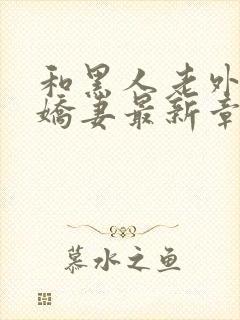 和黑人老外
娇妻最新章
慕水之鱼